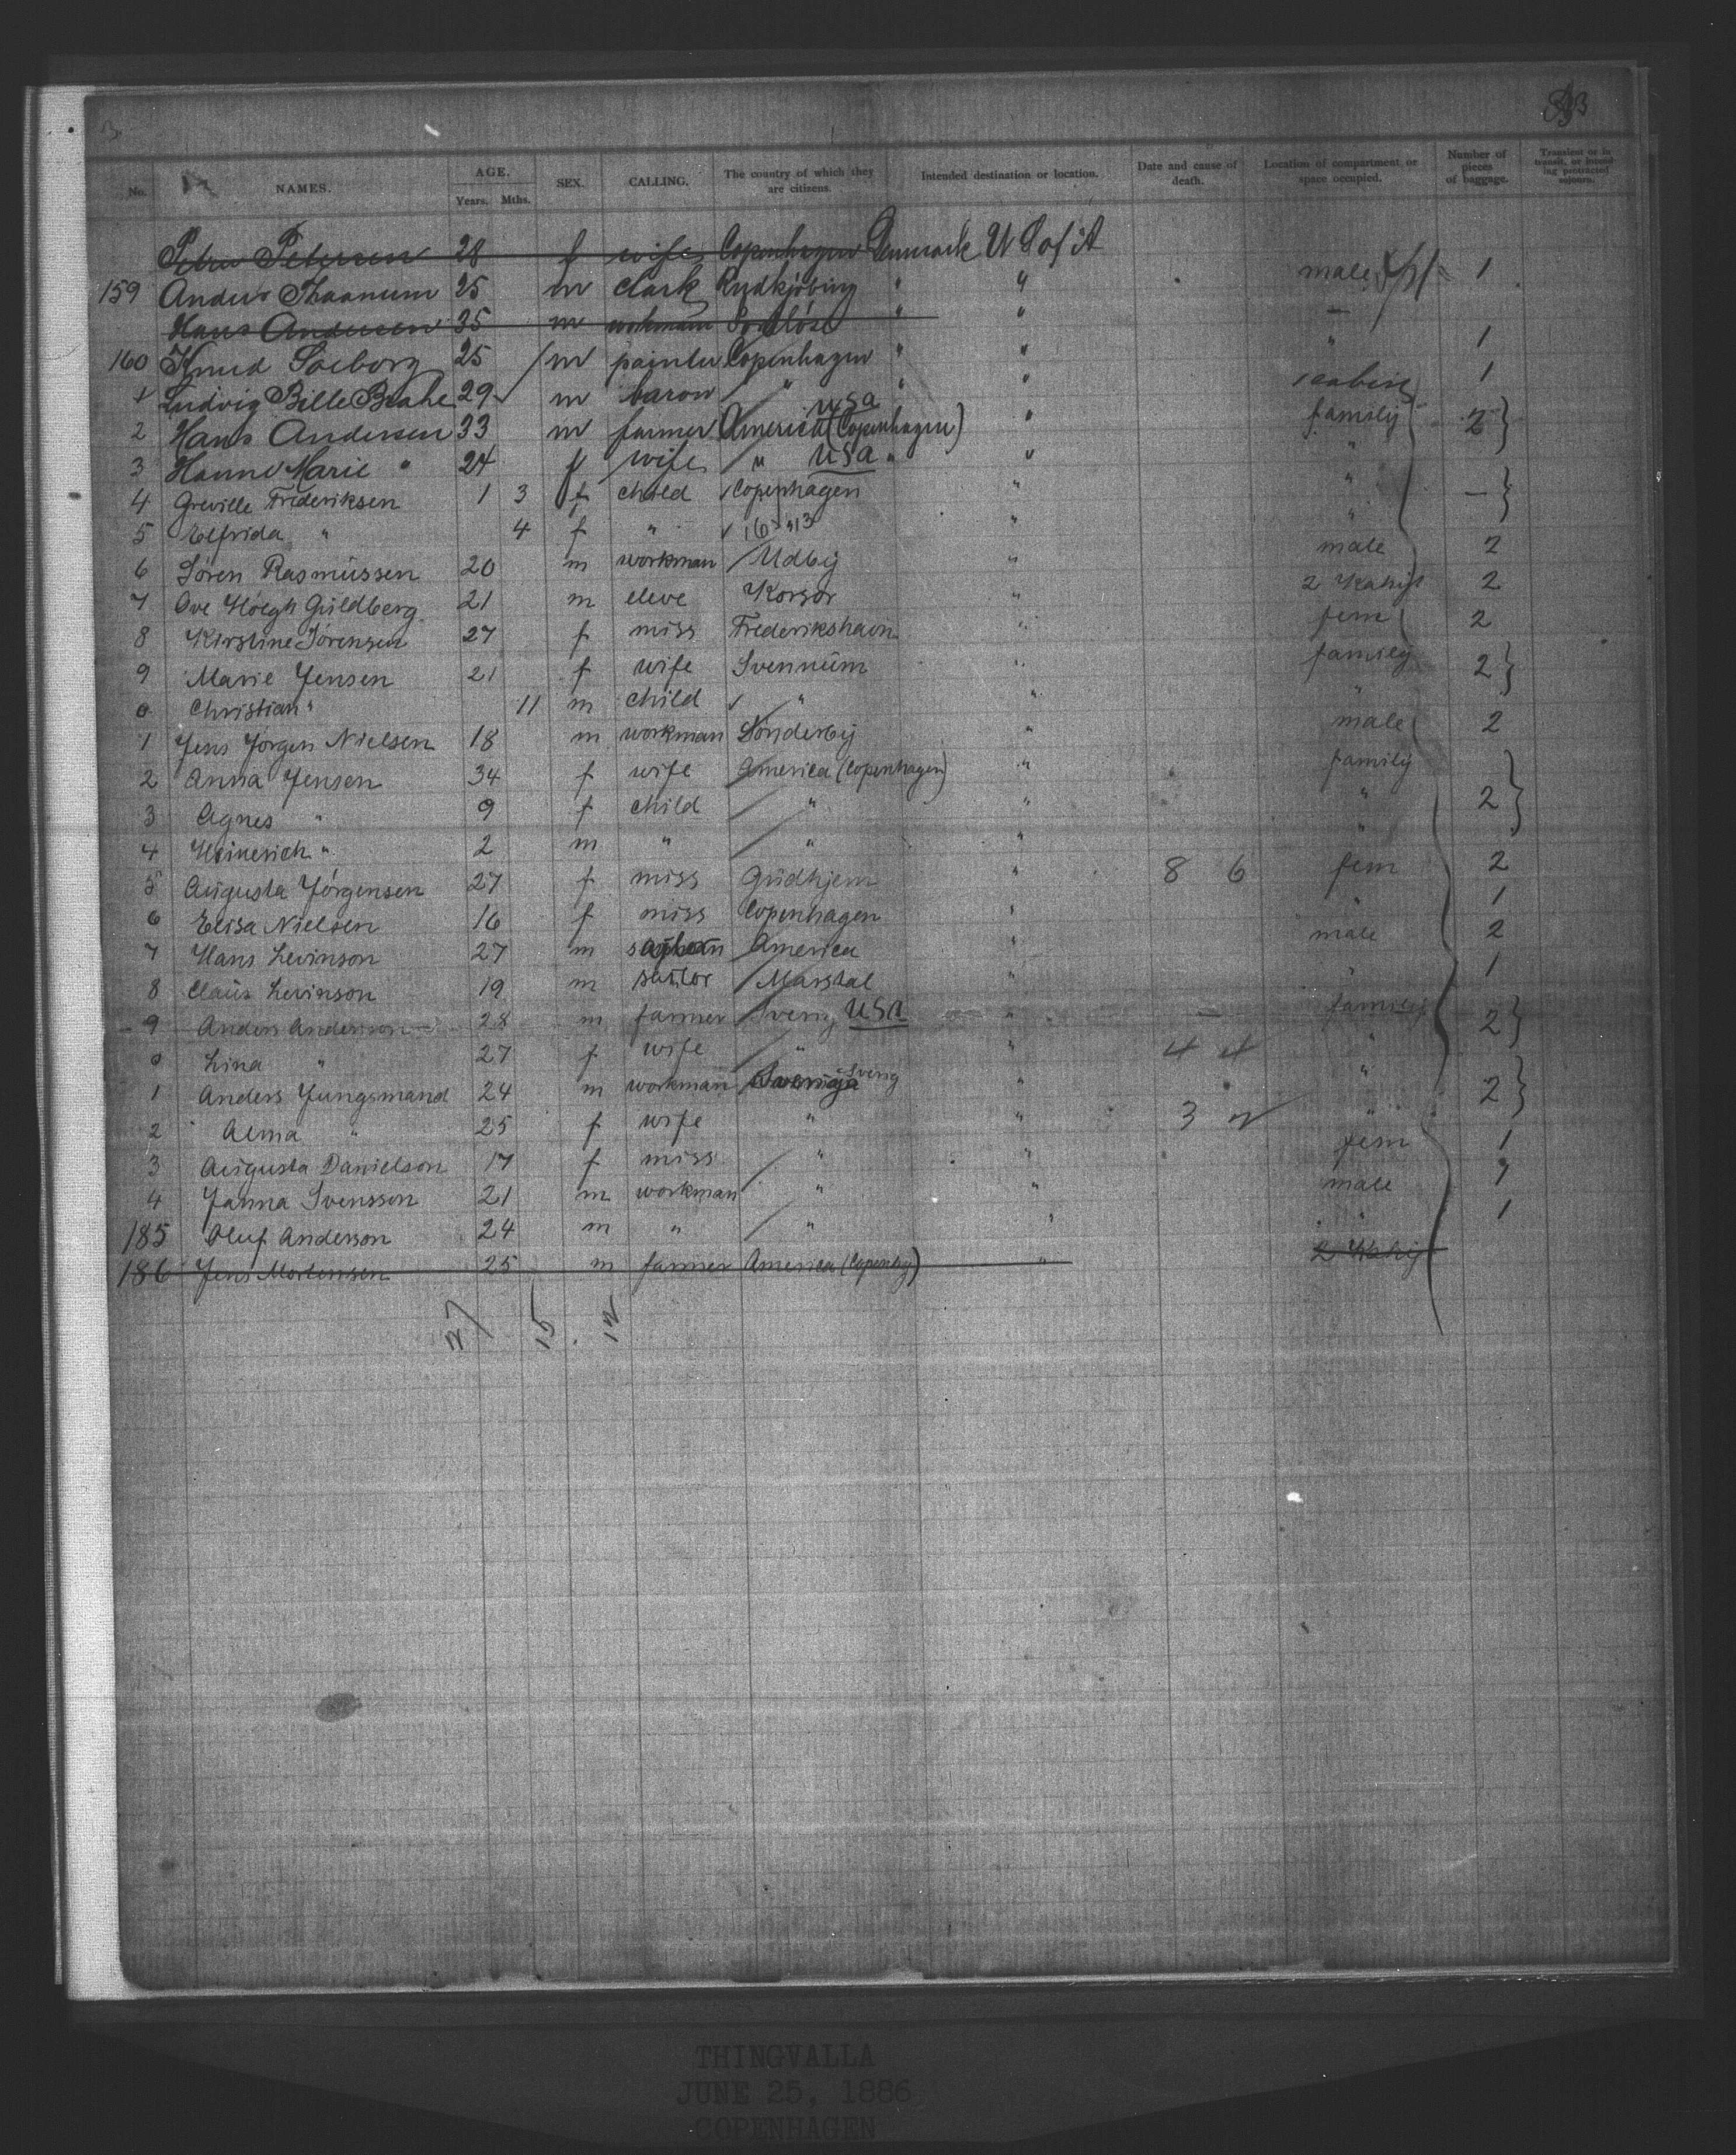 No. NAMES. AGE. Years. Mths. SEX. CALLING. The country of which they are citizens. Intended destination or location. Date and cause of death. Location of compartment or space occupied. Number of pieces of baggage. Transient or in transit, or intending protracted sojourn.
Petra Petersen 28 f wife Copenhagen Denmark U S of A
159 Anders Thaanum 25 m clark Rudkjöbing " " male 1
Hans Andersen 35 m workman " "
160 Knud Soeborg 25 m painter Copenhagen " " " 1
1 Ludvig Bille Brahe 29 m baron " " " 1 cabin 1
2 Hans Andersen 33 m farmer America (Copenhagen) USA " family 2
3 Hanne Marie " 24 f wife " USA " " "
4 Greville Frederiksen 1 3 f child Copenhagen " " —
5 Elfrida " 4 f " " " "
6 Sören Rasmussen 20 m workman Udby " male 2
7 Ove Höegh Guldberg 21 m eleve Korsör " 2 Kahyt 2
8 Kirstine Sörensen 27 f miss Frederikshavn " fem 2
9 Marie Jensen 21 f wife Svennum " family 2
0 Christian " 11 m child " " "
1 Jens Jörgen Nielsen 18 m workman Sönderby " male 2
2 Anna Jensen 34 f wife America (Copenhagen) " family
3 Agnes " 9 f child " " " 2
4 Heinerich " 2 m " " " "
5 Augusta Jörgensen 27 f miss Gudhjem " 8 6 fem 2
6 Elisa Nielsen 16 f miss Copenhagen " " 1
7 Hans Levinson 27 m America " male 2
8 Claus Levinson 19 m sailor Marstal " " 1
9 Anders Anderson 28 m farmer Sverig USA " family 2
0 Lina " 27 f wife " " 4 4 "
1 Anders Jungsmand 24 m workman Sverig " " 2
2 Alma " 25 f wife " " 3 "
3 Augusta Danielson 17 f miss " " fem 1
4 Janna Svensson 21 m workman " " male 1
185 Oluf Anderson 24 m " " " " 1
186 Jens Mortensen 25 m farmer America (Copenhg) " 2 Kahyt
15 12
THINGVALLA
JUNE 25, 1886
COPENHAGEN